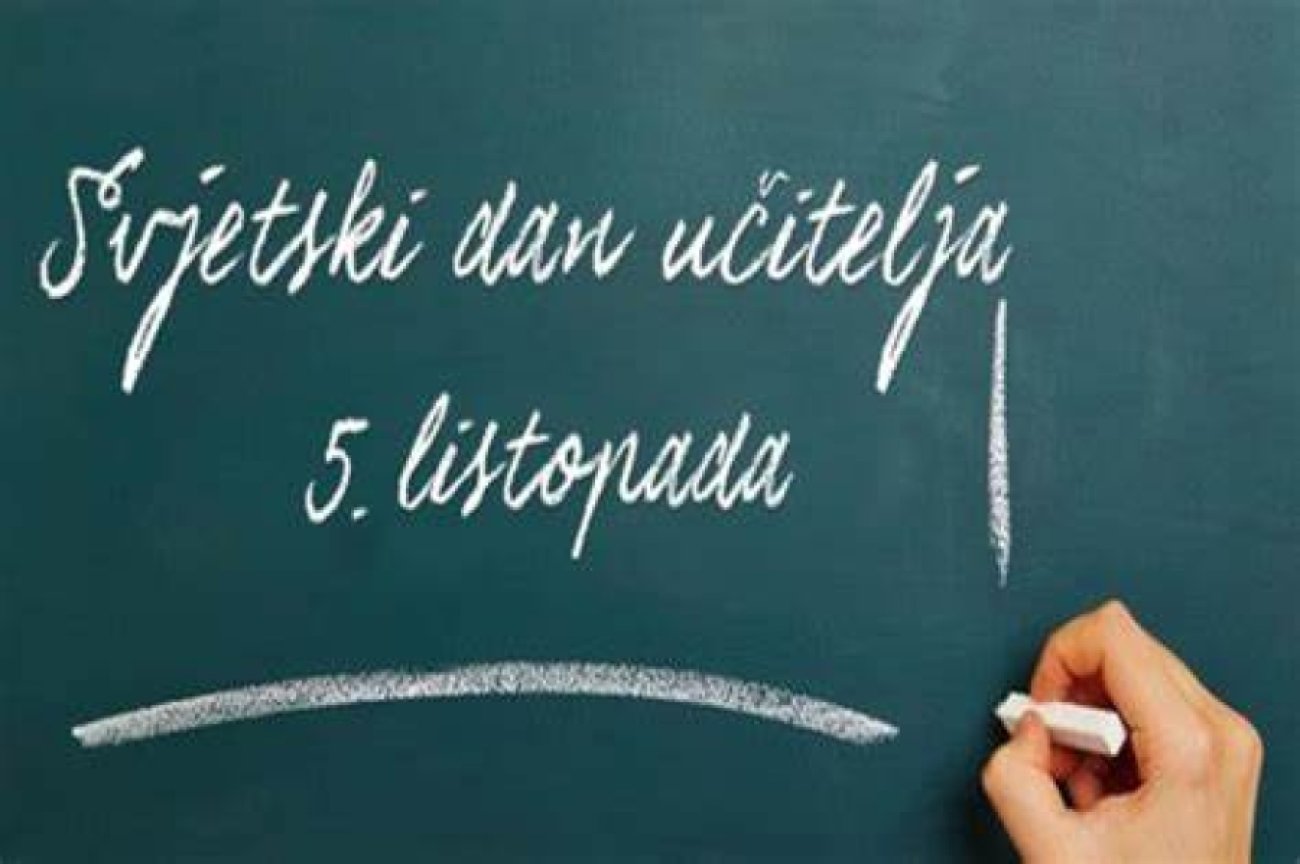 Svjetski dan učitelja
5. listopada